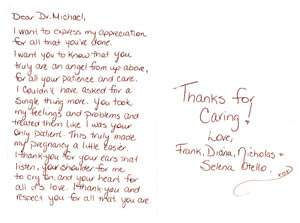 Dear Dr. Michael,
I want to express my appreciation
for all that you've done.
I want you to know that you
truly are an angel from up above,
for all your patience and care.
I couldn't have asked for a
single thing more. You took
my feelings and problems and
treated them like I was your
only patient. This truly made
my pregnancy a little easier.
I thank you for your ears that
listen, your shoulder for me
to cry on and your heart for
all it's love. I thank you and
respect you for all that you are.
Thanks for
Caring!
Love,
Frank, Diana, Nicholas +
Selena Otello.
xox